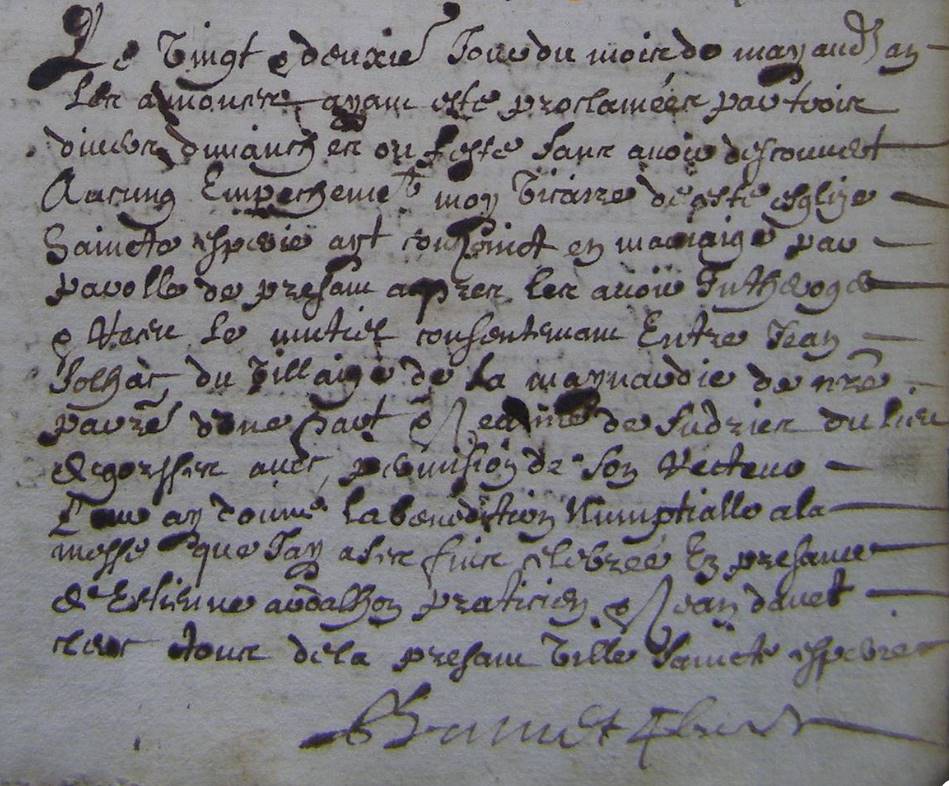 Le vingt e deuxie Jour du mois de may aud an
Les anonces ayant esté proclamées par trois
divers dimanches ou feste sans avoir descouvert
Aucung Empecheme^t moy vicaire de ceste esglize
Saincte espérie ayt conjoinct en mariaige par
parolle de presant apres les avoir Inthérogé
e le mutuel consentemant Entre Jean
Solhac du villaige de la maynardie de nre
par d'une part e Jeanne de Sudrier du lieu
de avec permission de son Recteur
ay donné la bénédiction Numptialle a la
messe que Jay célébrée En presance
de Estienne praticien e Jean davet
clerc tous de la presant ville Saincte espérie